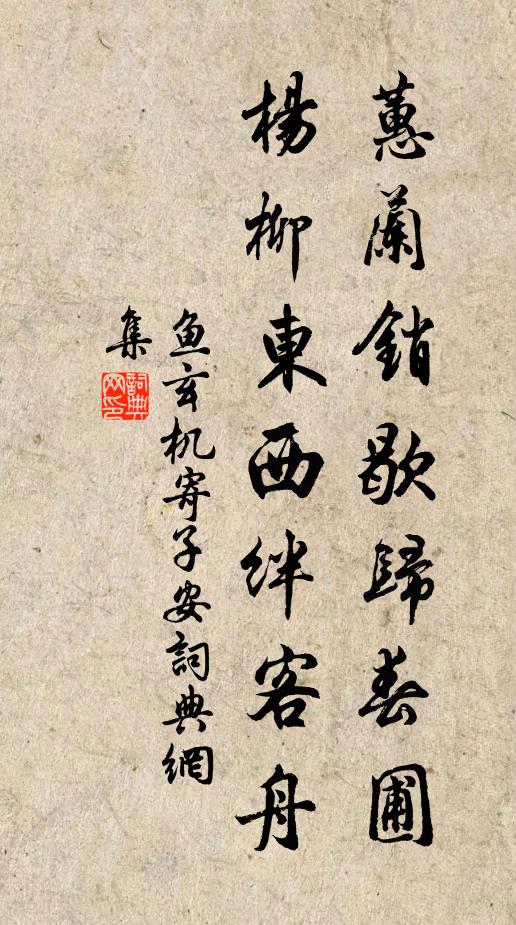 蕙蘭銷歇歸春圃
楊柳東西絆客舟
鱼玄机寄子安詞典網
集
詞典网印